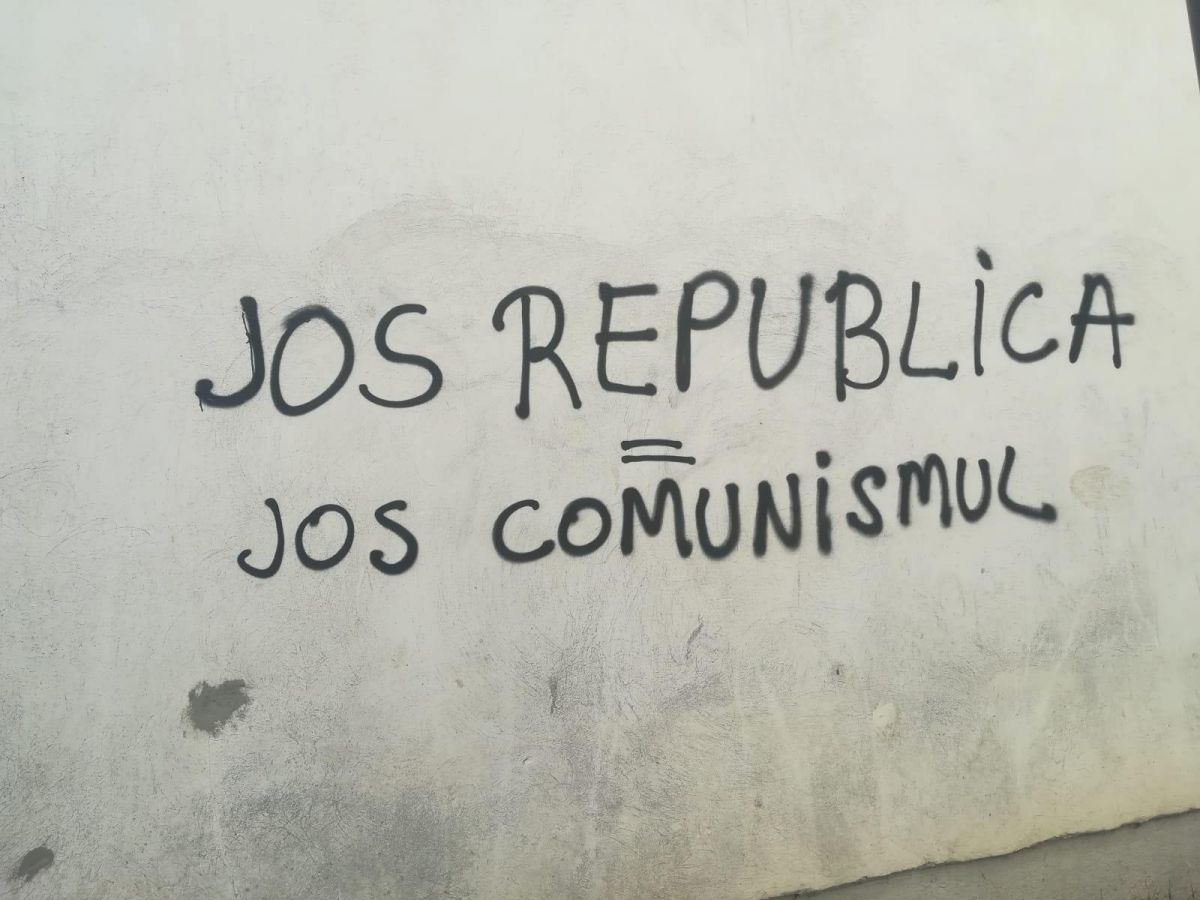 JOS REPUBLICA
=
JOS COMUNISMUL